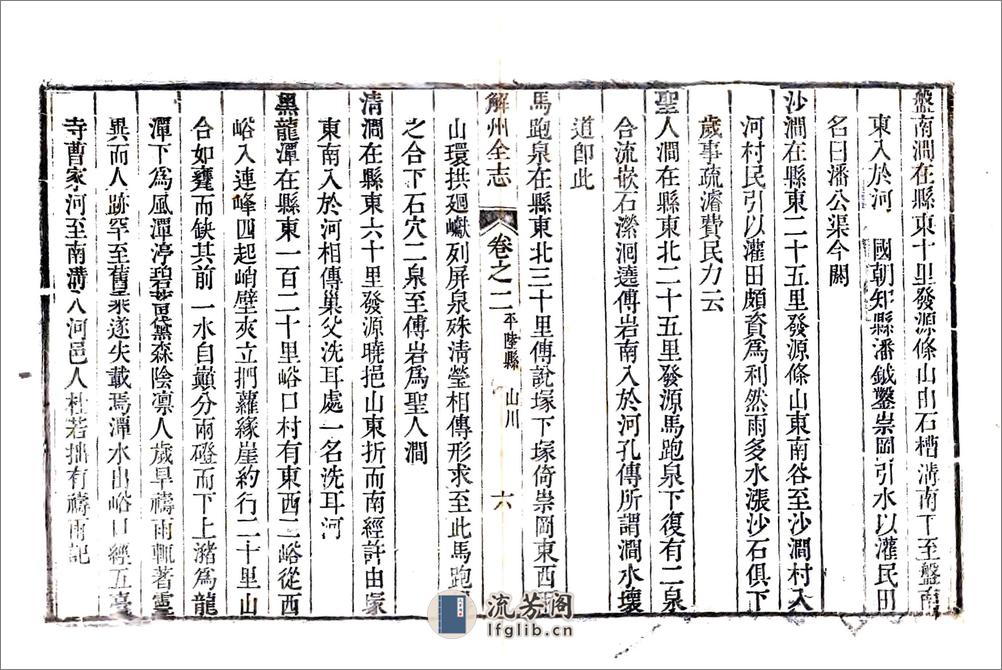 盤南澗在縣東十里發源條山由石槽溝南下至盤南
東入於河　國朝知縣潘鉞鑿崇岡引水以灌民田
名曰潘公渠今闕
沙澗在縣東二十五里發源條山東南谷至沙澗村入
河村民引以灌田頗資為利然雨多水漲沙石俱下
歲事疏濬費民力云
聖人澗在縣東北二十五里發源馬跑泉下復有二泉
合流嵌石瀠洄遶傅岩南入於河孔傳所謂澗水壞
道即此
馬跑泉在縣東北三十里傅說塚下塚倚崇岡東西
解州全志　卷之二　平陸縣　山川　六
山環拱迴巘列屏泉殊清瑩相傳形求至此馬跑
之合下石穴二泉至傅岩為聖人澗
清澗在縣東六十里發源曉挹山東折而南經許由塚
東南入於河相傳巢父洗耳處一名洗耳河
黑龍潭在縣東一百二十里峪口村有東西二峪從西
峪入連峰四起峭壁夾立捫蘿緣崖約行二十里山
合如甕而缺其前一水自巔分兩磴而下上瀦為龍
潭下為風潭渟碧蓄黛森陰凛人歲旱禱雨輒著靈
異而人跡罕至舊乘遂失載焉潭水出峪口經五臺
寺曹家河至南溝入河邑人杜若拙有禱雨記
流芳閣
lfglib.cn